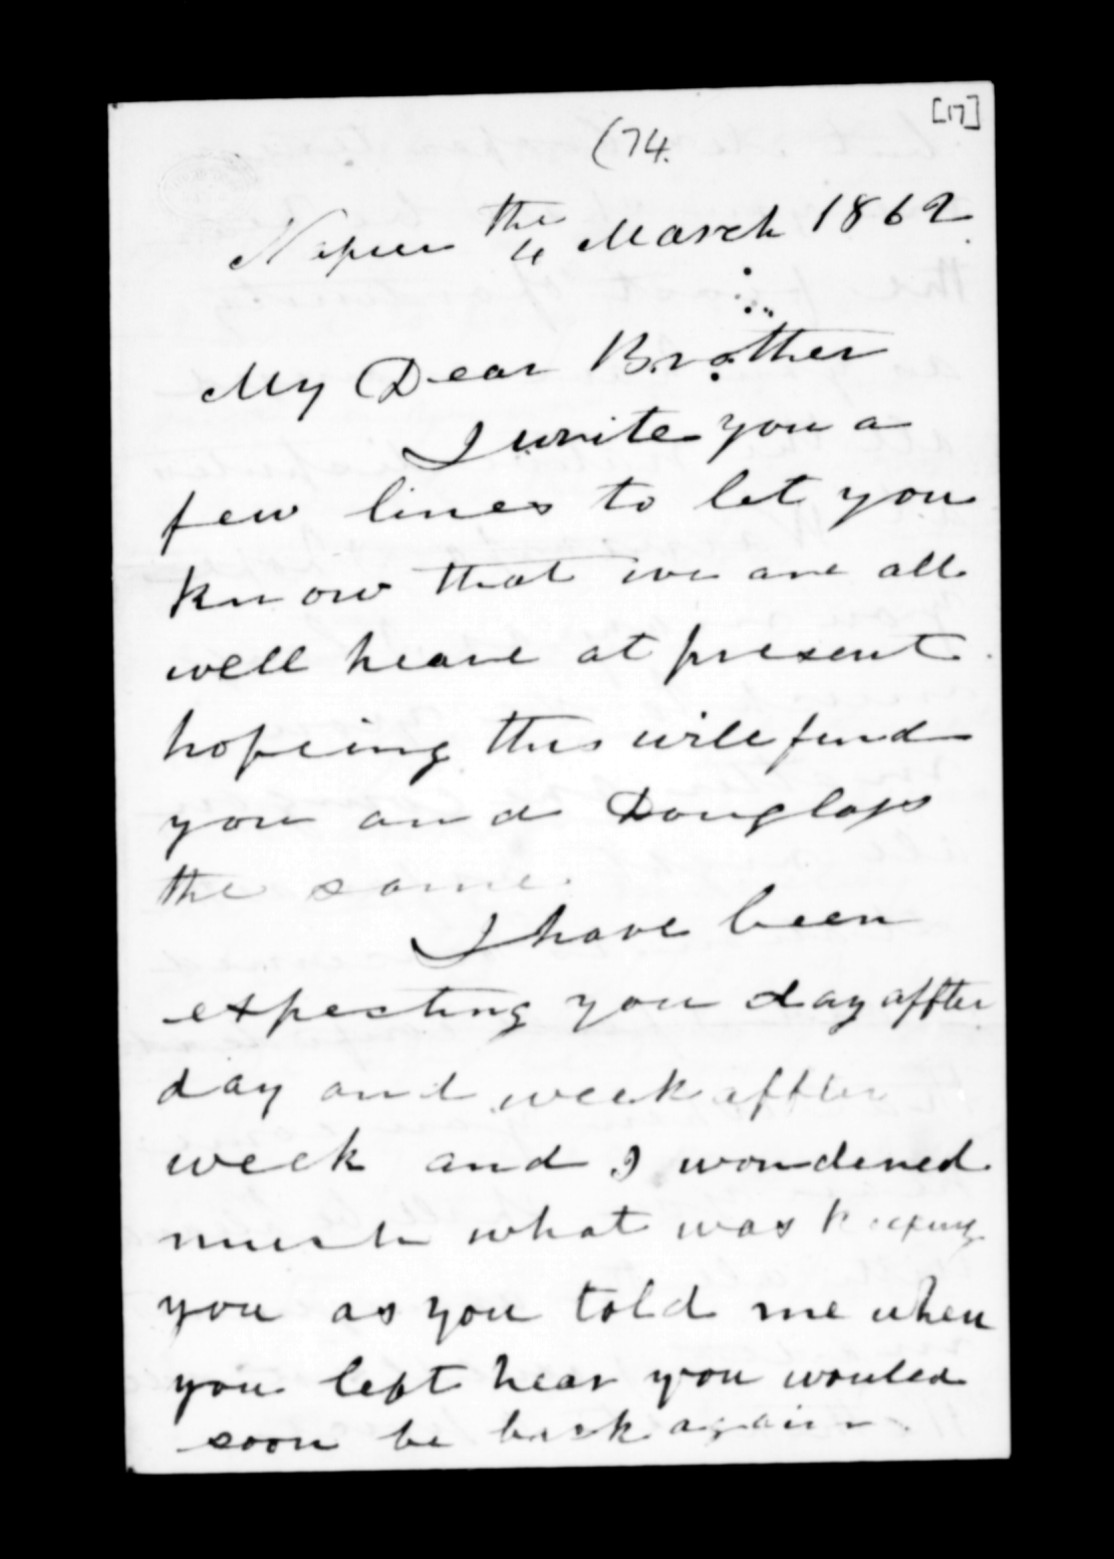 [17]
(74.
Napier the 4 March 1862
My Dear Brother
I write you a
few lines to let you
know that we are all
well heare at present
hopeing this will find
you and Douglass
the same.
I have been
expecting you day affter
day and week affter
week and I wondered
much what was keeping
you as you told me when
you left hear you woulld
soon be back again.